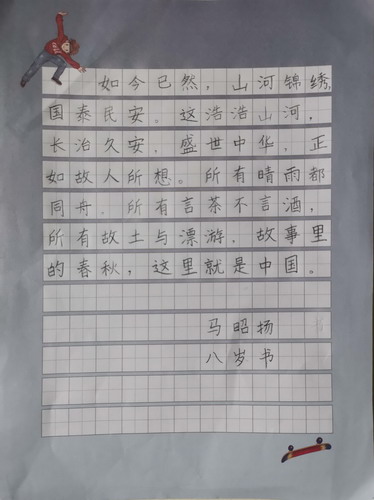 如今已然，山河锦绣，
国泰民安。这浩浩山河，
长治久安，盛世中华，正
如故人所想。所有晴雨都
同舟，所有言茶不言酒，
所有故土与漂游，故事里
的春秋，这里就是中国。
马昭扬
八岁书